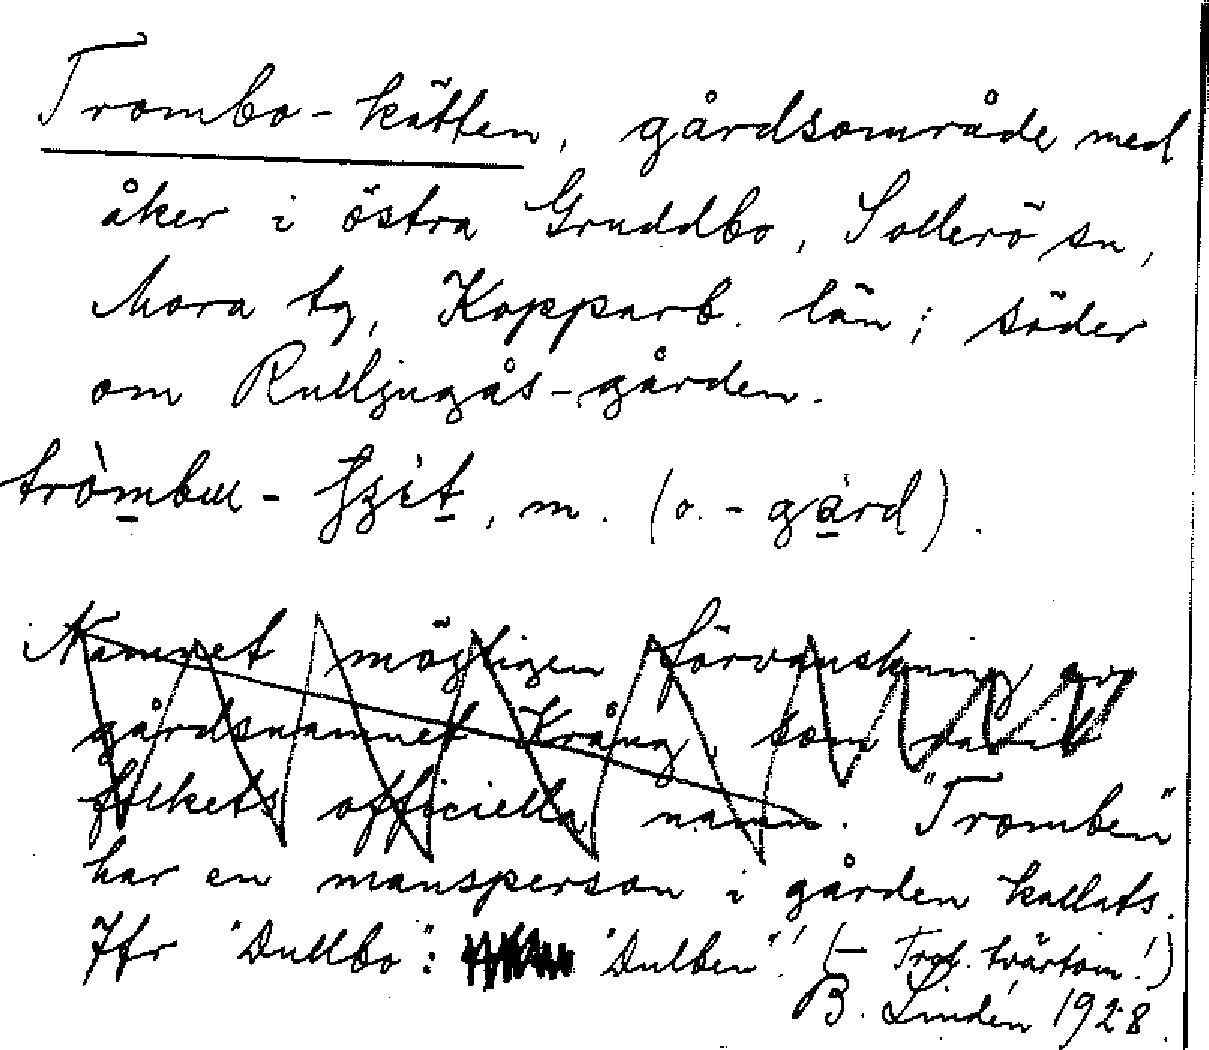 Trombo-kätten, gårdsområde med
åker i östra Gruddbo, Sollerö sn,
Mora tg, Kopparb. län; söder
om Rulljugås-gården.
m. (o. -gård).
Namnet möjligen förvanskning av
gårdsnamnet Krång, som varit
folkets officiella namn. "Tromben"
har en mansperson i gården kallats.
Jfr "Dullbo": "Dulben"! (— Trol. tvärtom!)
B. Lindén 1928.